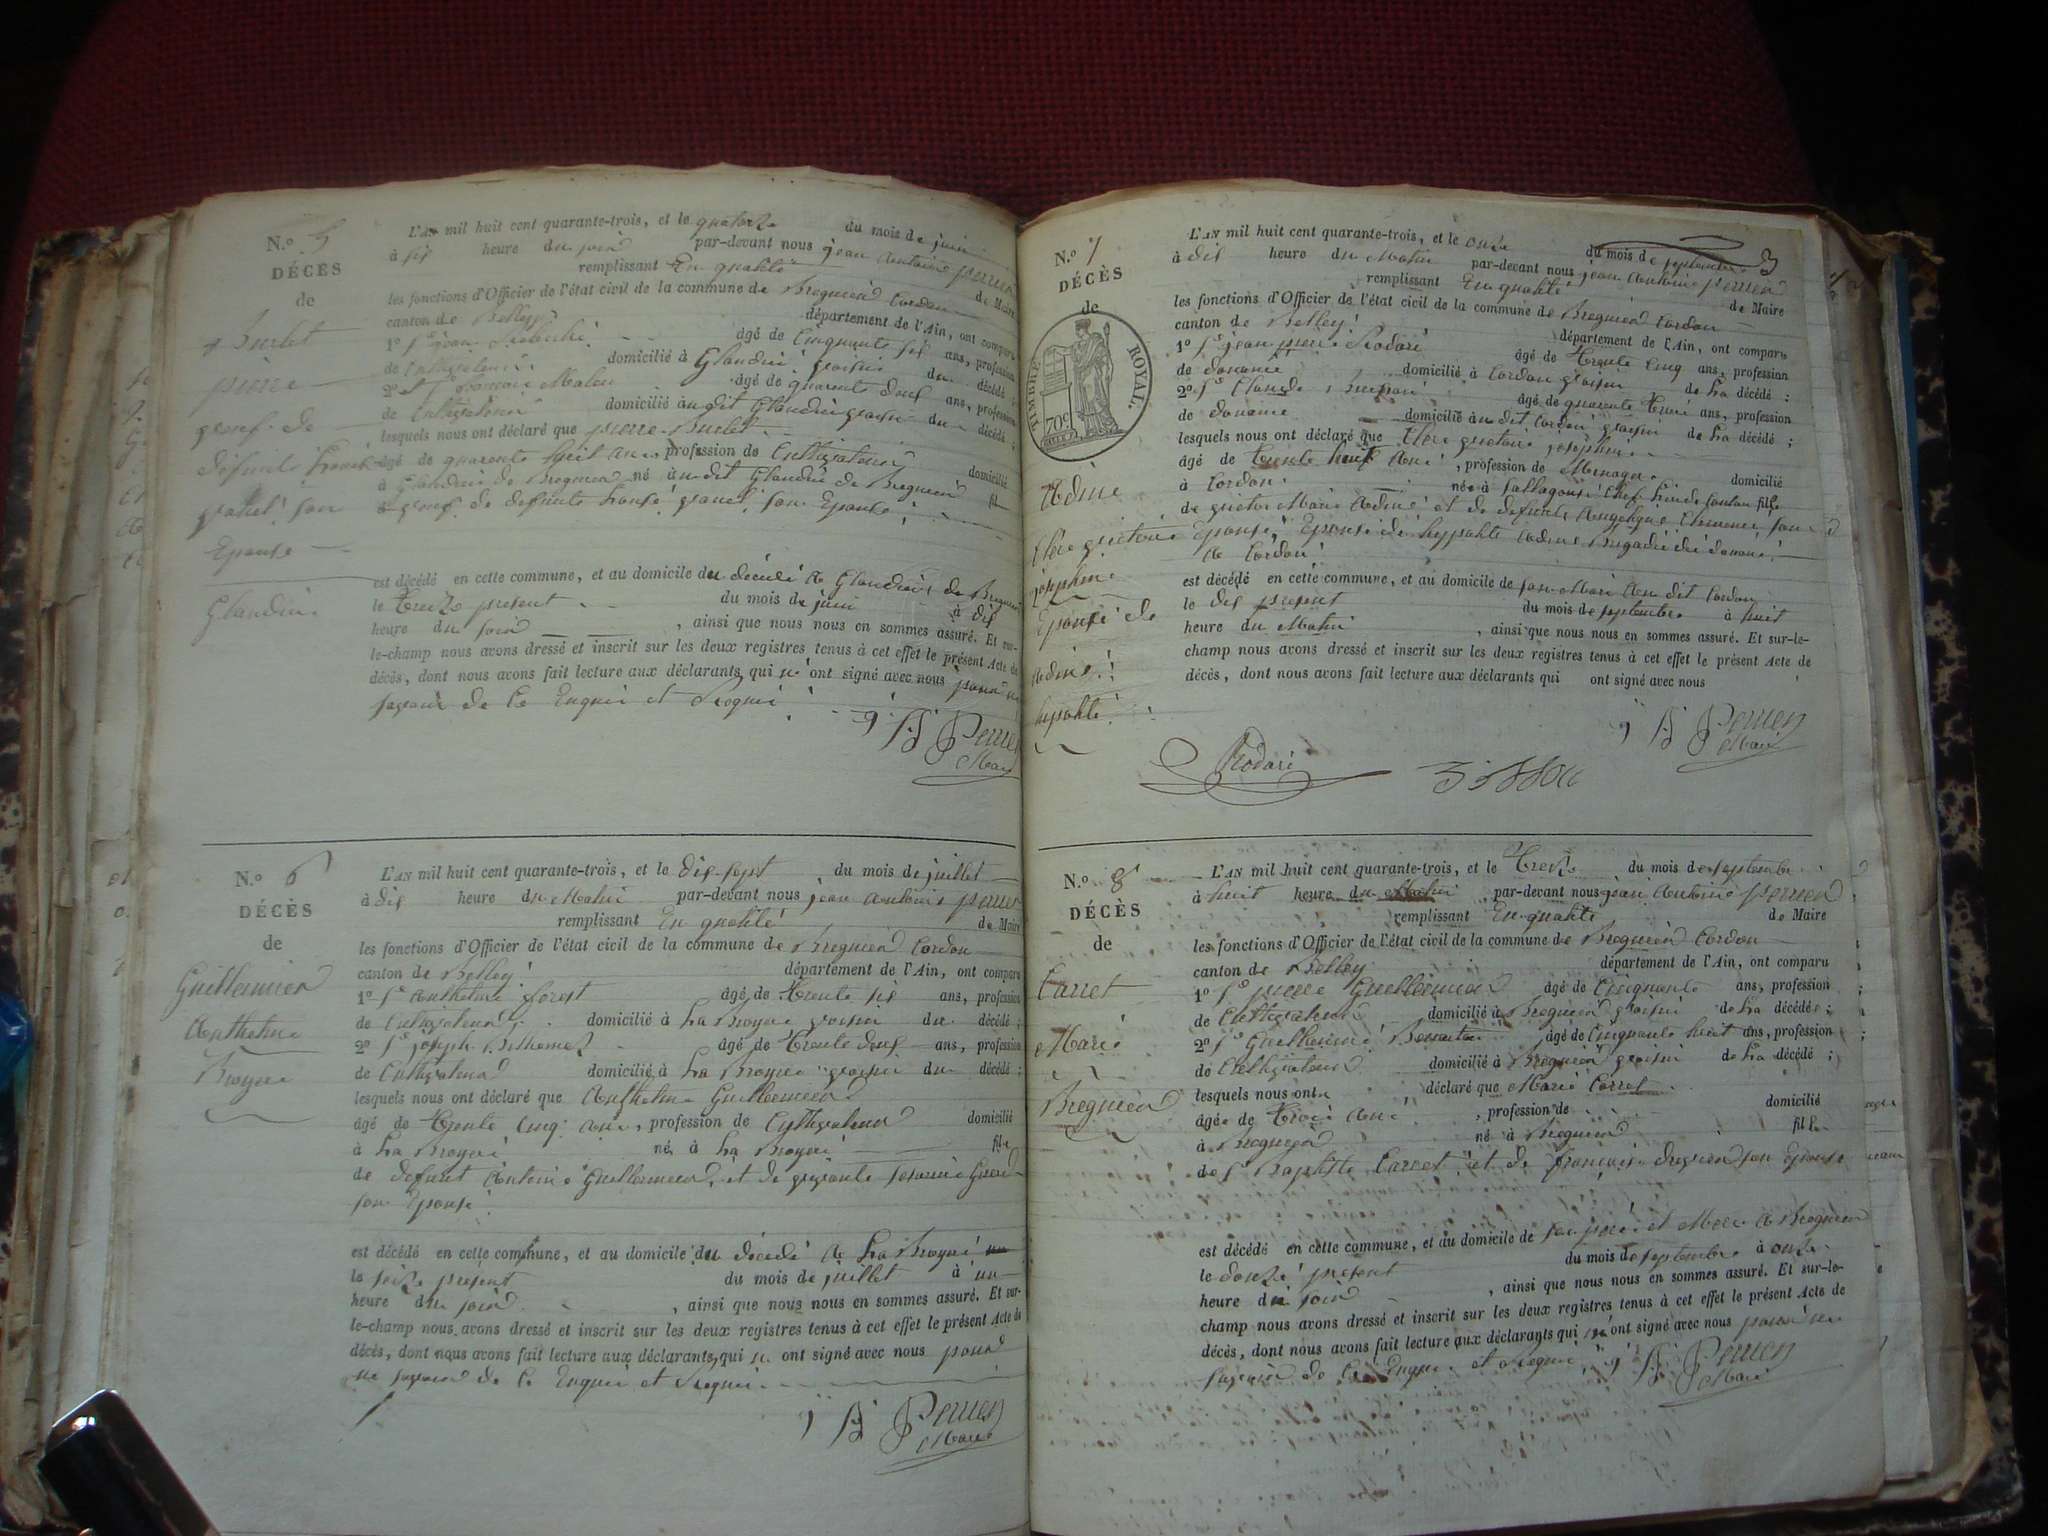 N.o 5
DÉCÈS
de
Burlet
pierre
veuf de
Glandieu
L'AN mil huit cent quarante-trois, et le quatorze du mois de juin
à six heure du soir par-devant nous jean Antoine perrier
remplissant En qualité de Maire
les fonctions d'Officier de l'état civil de la commune de Bregnier Cordon
canton de Belley département de l'Ain, ont comparu
1º Sr jean âgé de Cinquante six ans, profession
de Cultivateur domicilié à Glandieu voisin du décédé ;
2º et françois âgé de quarente deux ans, profession
de Cultivateur domicilié au dit Glandieu voisin du décédé ;
lesquels nous ont déclaré que pierre Burlet
âgé de quarente huit ans, profession de Cultivateur domicilié
à Glandieu de Bregnier né au dit Glandieu de Bregnier fil
veuf de defunte son Epouse
est décédé en cette commune, et au domicile du décédé à Glandieu de Bregnier
le treize présent du mois de juin à dix
heure du soir, ainsi que nous nous en sommes assuré. Et sur-
le-champ nous avons dressé et inscrit sur les deux registres tenus à cet effet le présent Acte de
décès, dont nous avons fait lecture aux déclarants, qui n'ont signé avec nous pour ne
savoir de ce Enquis et Requis
Perrier
Maire
N.o 6
DÉCÈS
de
Guillermier
Anthelme
Broyere
L'AN mil huit cent quarante-trois, et le dix-sept du mois de juillet
à dix heure du Matin par-devant nous jean Antoine perrier
remplissant En qualité de Maire
les fonctions d'Officier de l'état civil de la commune de Bregnier Cordon
canton de Belley département de l'Ain, ont comparu
1º Sr Anthelme forest âgé de trente six ans, profession
de Cultivateur domicilié à La Broyere voisin du décédé ;
2º Sr joseph âgé de trente deux ans, profession
de Cultivateur domicilié à La Broyere voisin du décédé ;
lesquels nous ont déclaré que Anthelme Guillermier
âgé de trente Cinq ans, profession de Cultivateur domicilié
à La Broyere né à La Broyere fils
de defunt Antoine Guillermier, et de vivante
son Epouse
est décédé en cette commune, et au domicile du décédé à La Broyere
le seize présent du mois de juillet à un
heure du soir, ainsi que nous nous en sommes assuré. Et sur-
le-champ nous avons dressé et inscrit sur les deux registres tenus à cet effet le présent Acte de
décès, dont nous avons fait lecture aux déclarants, qui n ont signé avec nous pour
ne savoir de ce Enquis et Requis
Perrier
Maire
3
N.o 7
DÉCÈS
de
TIMBRE ROYAL.
70c
Adine
victoire
josephine
Epouse de
Adine
hypolite
L'AN mil huit cent quarante-trois, et le onze du mois de septembre
à dix heure du Matin par-devant nous jean Antoine perrier
remplissant En qualité de Maire
les fonctions d'Officier de l'état civil de la commune de Bregnier Cordon
canton de Belley département de l'Ain, ont comparu
1º Sr jean pierre Rodari âgé de trente cinq ans, profession
de douanier domicilié à Cordon voisin de La décédé ;
2º Sr Claude âgé de quarente trois ans, profession
de douanier domicilié au dit Cordon voisin de La décédé ;
lesquels nous ont déclaré que victoire josephine
âgé de trente huit ans, profession de Menagere domicilié
à Cordon née à fille
de victor Marie Adine et de defunte Angelique son
Epouse, Epouse de hyppolite Adine Brigadier des douanes
à Cordon
est décédé en cette commune, et au domicile de son Mari au dit Cordon
le dix présent du mois de septembre à huit
heure du Matin, ainsi que nous nous en sommes assuré. Et sur-le-
champ nous avons dressé et inscrit sur les deux registres tenus à cet effet le présent Acte de
décès, dont nous avons fait lecture aux déclarants qui ont signé avec nous
Perrier
Maire
Rodari
N.o 8
DÉCÈS
de
Carret
Marie
Bregnier
L'AN mil huit cent quarante-trois, et le treize du mois de septembre
à huit heure du Matin par-devant nous jean Antoine perrier
remplissant En qualité de Maire
les fonctions d'Officier de l'état civil de la commune de Bregnier Cordon
canton de Belley département de l'Ain, ont comparu
1º Sr pierre Guillermier âgé de Cinquante ans, profession
de Cultivateur domicilié à Bregnier voisin de La décédée ;
2º Sr âgé de Cinquante huit ans, profession
de Cultivateur domicilié à Bregnier voisin de La décédé ;
lesquels nous ont déclaré que Marie Carret
âgée de trois ans, profession de domicilié
à Bregnier né à Bregnier fille
de Sr Baptiste Carret et de françoise son Epouse
est décédé en cette commune, et au domicile de son père et Mère à Bregnier
le douze présent du mois de septembre à onze
heure du soir, ainsi que nous nous en sommes assuré. Et sur-le-
champ nous avons dressé et inscrit sur les deux registres tenus à cet effet le présent Acte de
décès, dont nous avons fait lecture aux déclarants qui n'ont signé avec nous pour ne
savoir de ce Enquis et Requis
Perrier
Maire